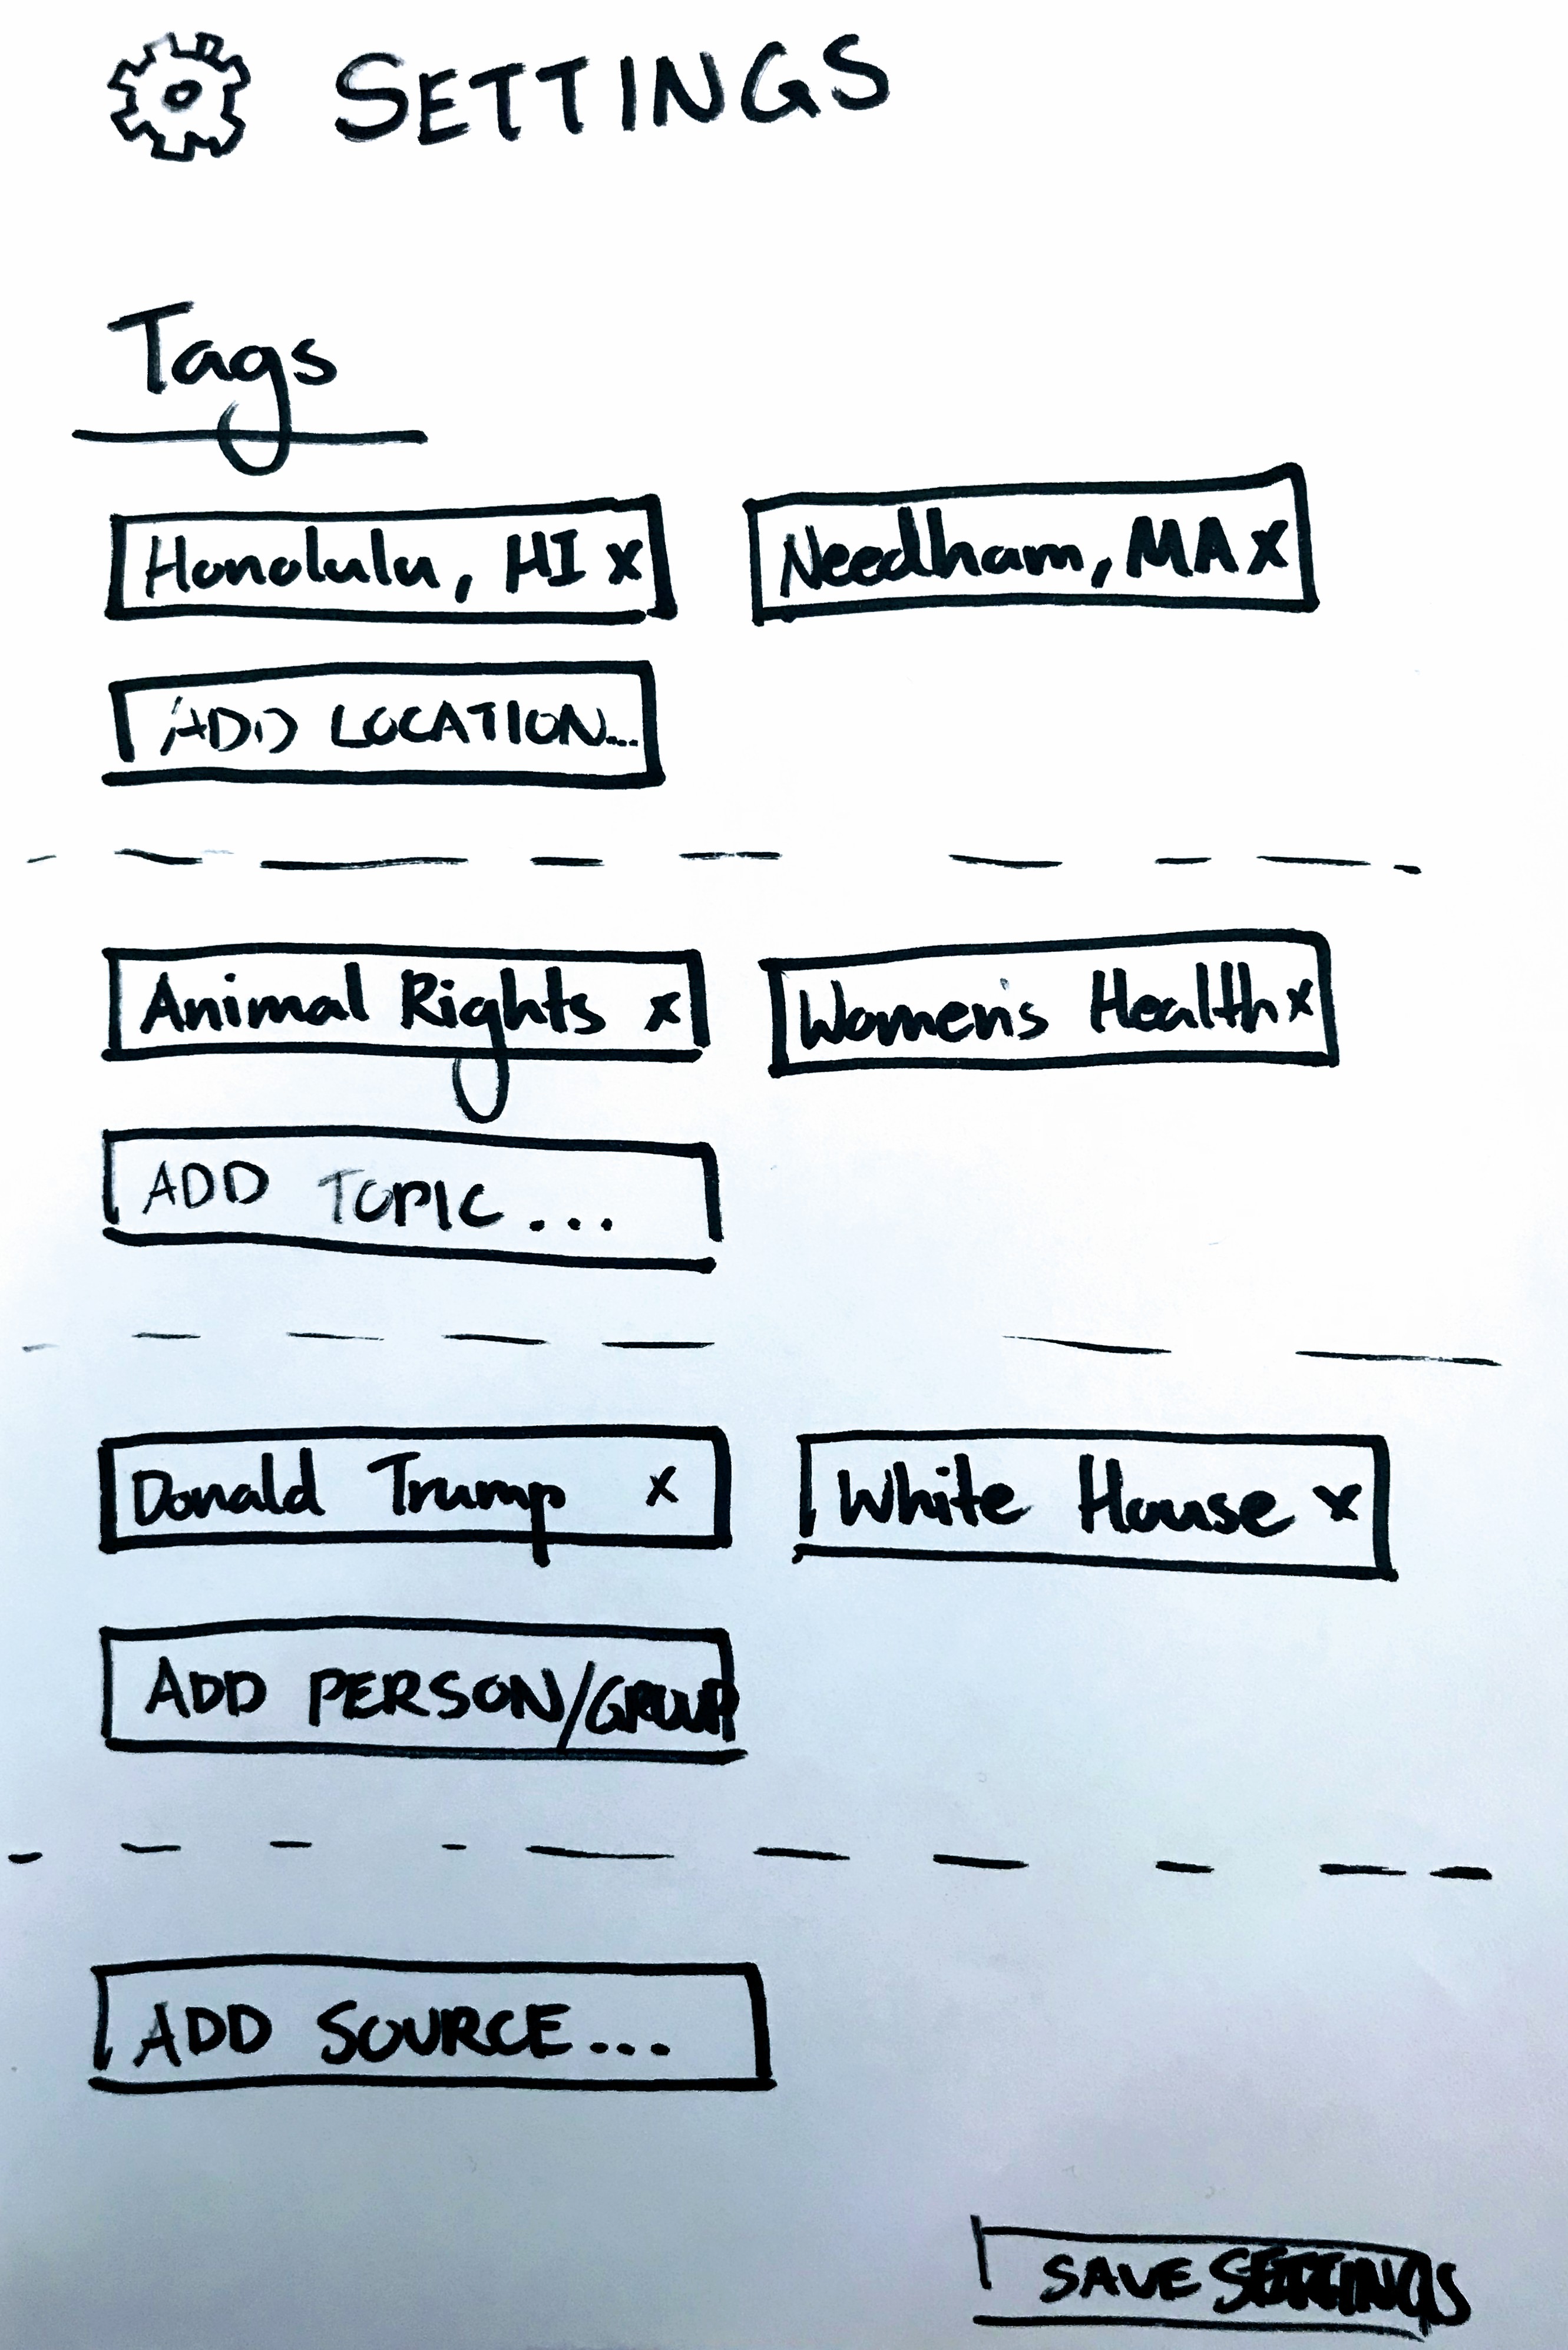 SETTINGS
Tags
Honolulu, HI x Needham, MA x
ADD LOCATION...
Animal Rights x Women's Health x
ADD TOPIC...
Donald Trump x White House x
ADD PERSON/GROUP
ADD SOURCE...
SAVE SETTINGS